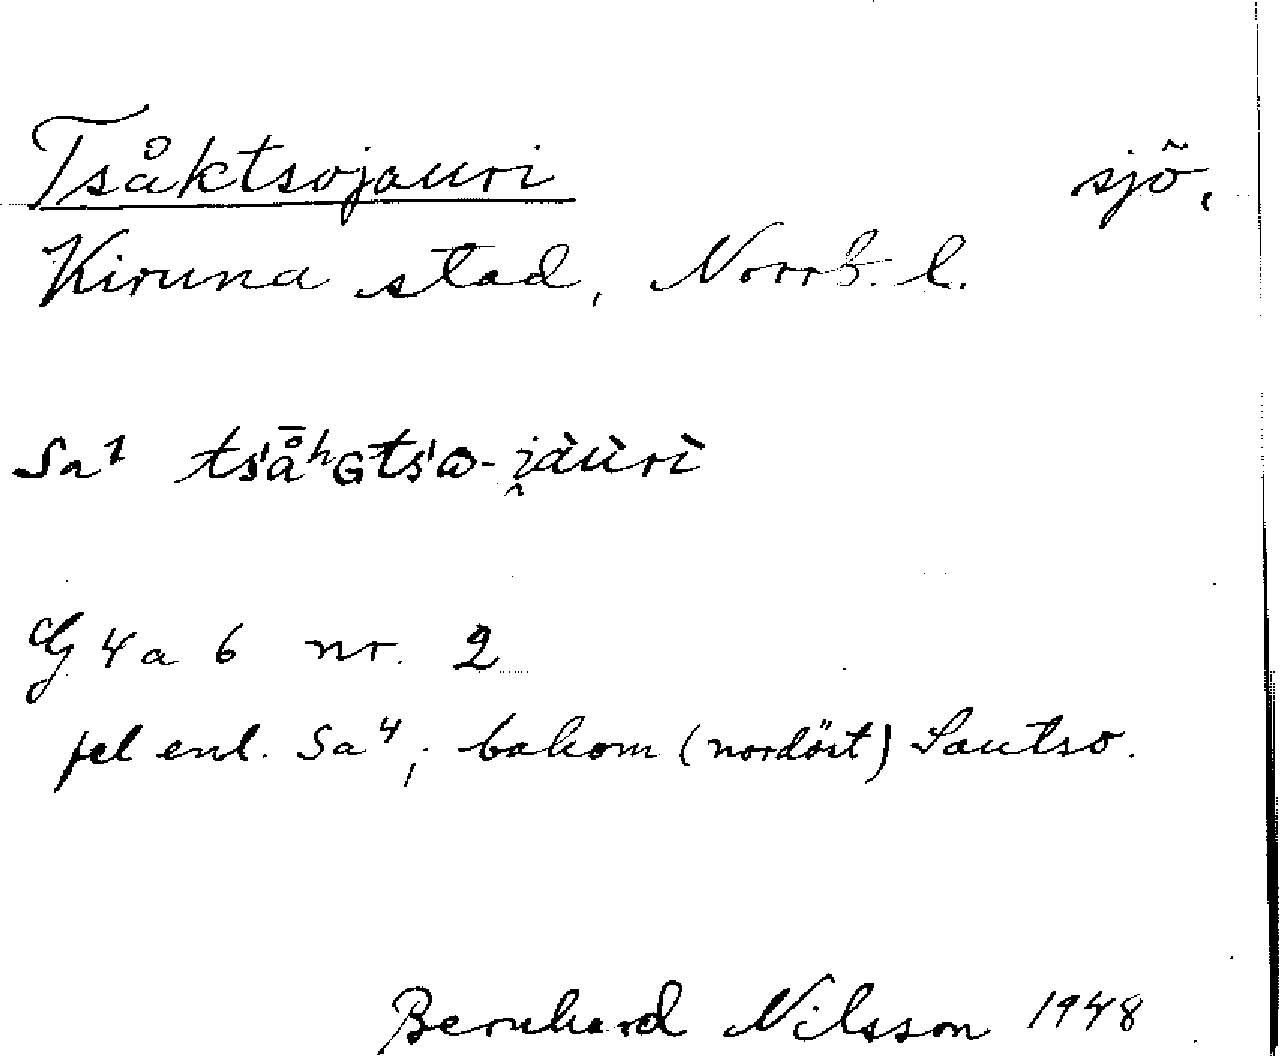 Tsåktsojauri sjö,
Kiruna stad, Norrb. l.
Sa¹ tśå̄ʰGtśω-i̯àùrì
G 4 a 6 nr. 2
fel enl. Sa⁴; bakom (nordöst) Sautso.
Bernhard Nilsson 1948